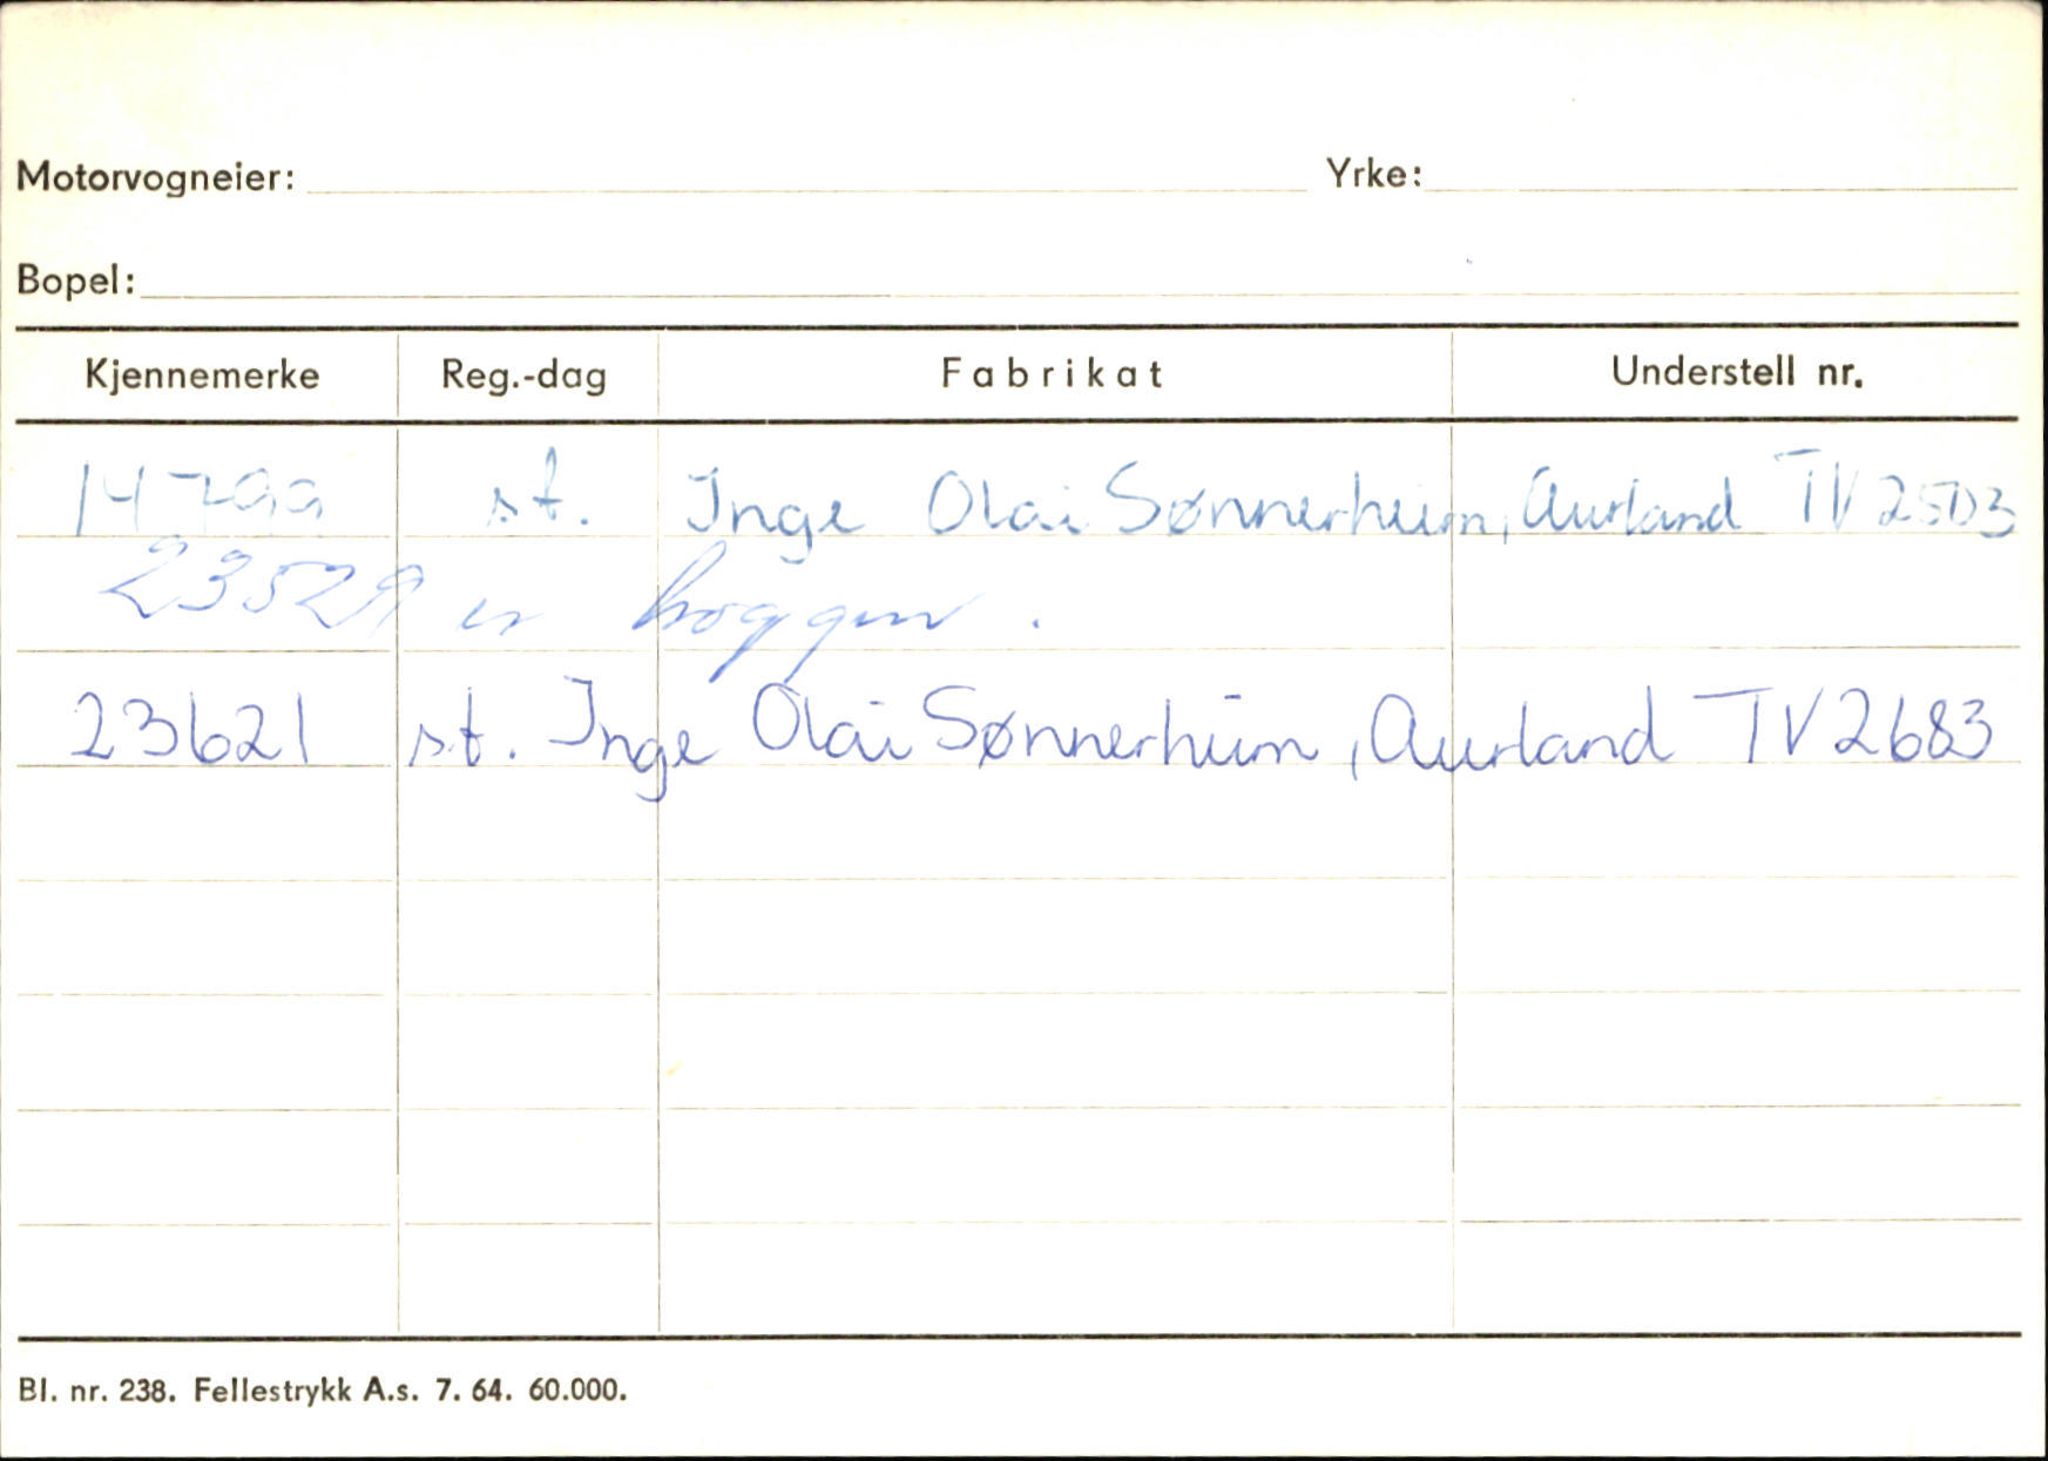 Motorvogneier: Yrke:
Bopel:
Kjennemerke Reg.-dag Fabrikat Understell nr.
14799 st. Inge Olai Sønnerheim, Aurland TV 2503
23529 er hoggen.
23621 st. Inge Olai Sønnerheim, Aurland TV 2683
Bl. nr. 238. Fellestrykk A.s. 7. 64. 60.000.